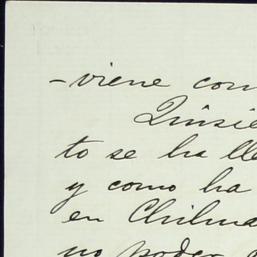 -viene con
Quisie
to se ha lle
y como ha
en Chihua
no poder